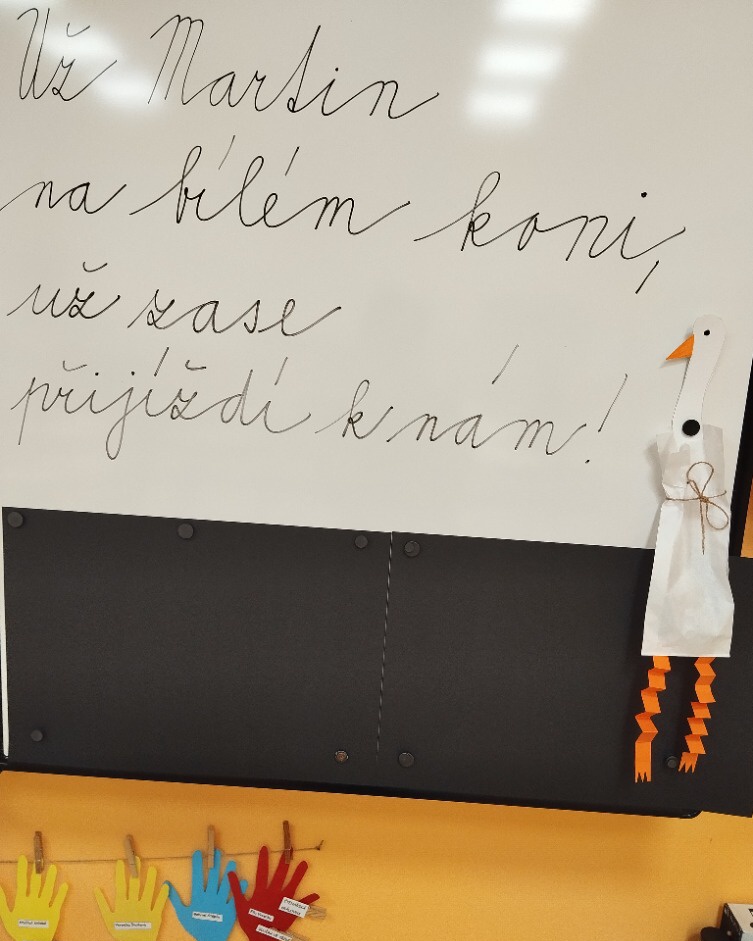 Už Martin
na bílém koni,
už zase
přijíždí k nám!